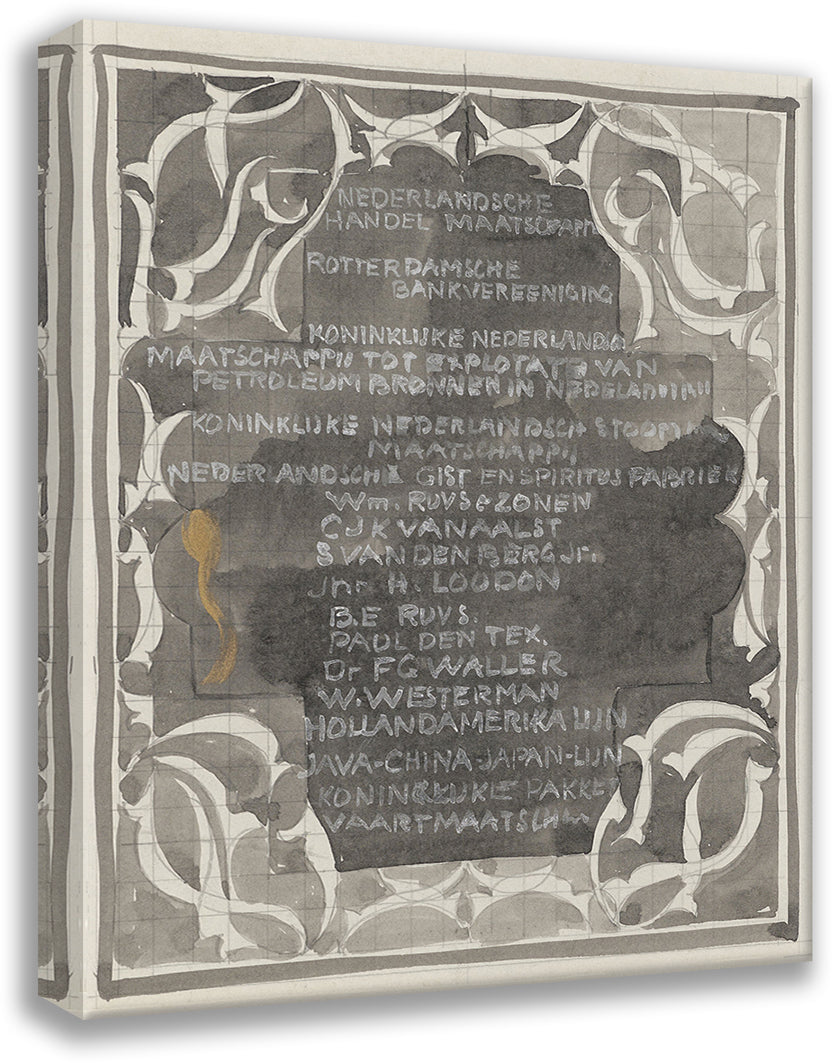 NEDERLANDSCHE
HANDEL MAATSCHAPPIJ
ROTTERDAMSCHE
BANKVEREENIGING
KONINKLIJKE NEDERLANDS
MAATSCHAPPIJ TOT EXPLOTATE VAN
PETROLEUM BRONNEN IN NEDELAND
KONINKLIJKE NEDERLANDSCH STOOM
MAATSCHAPPIJ
NEDERLANDSCHE GIST EN SPIRITUS FABRIEK
Wm. RUYS & ZONEN
C J K VAN AALST
S VAN DEN BERG Jr.
Jhr H. LOUDON
B.E RUYS.
PAUL DEN TEX.
Dr F G WALLER
W. WESTERMAN
HOLLAND AMERIKA LIJN
JAVA-CHINA-JAPAN-LIJN
KONINKLIJKE PAKKET
VAART MAATSCH